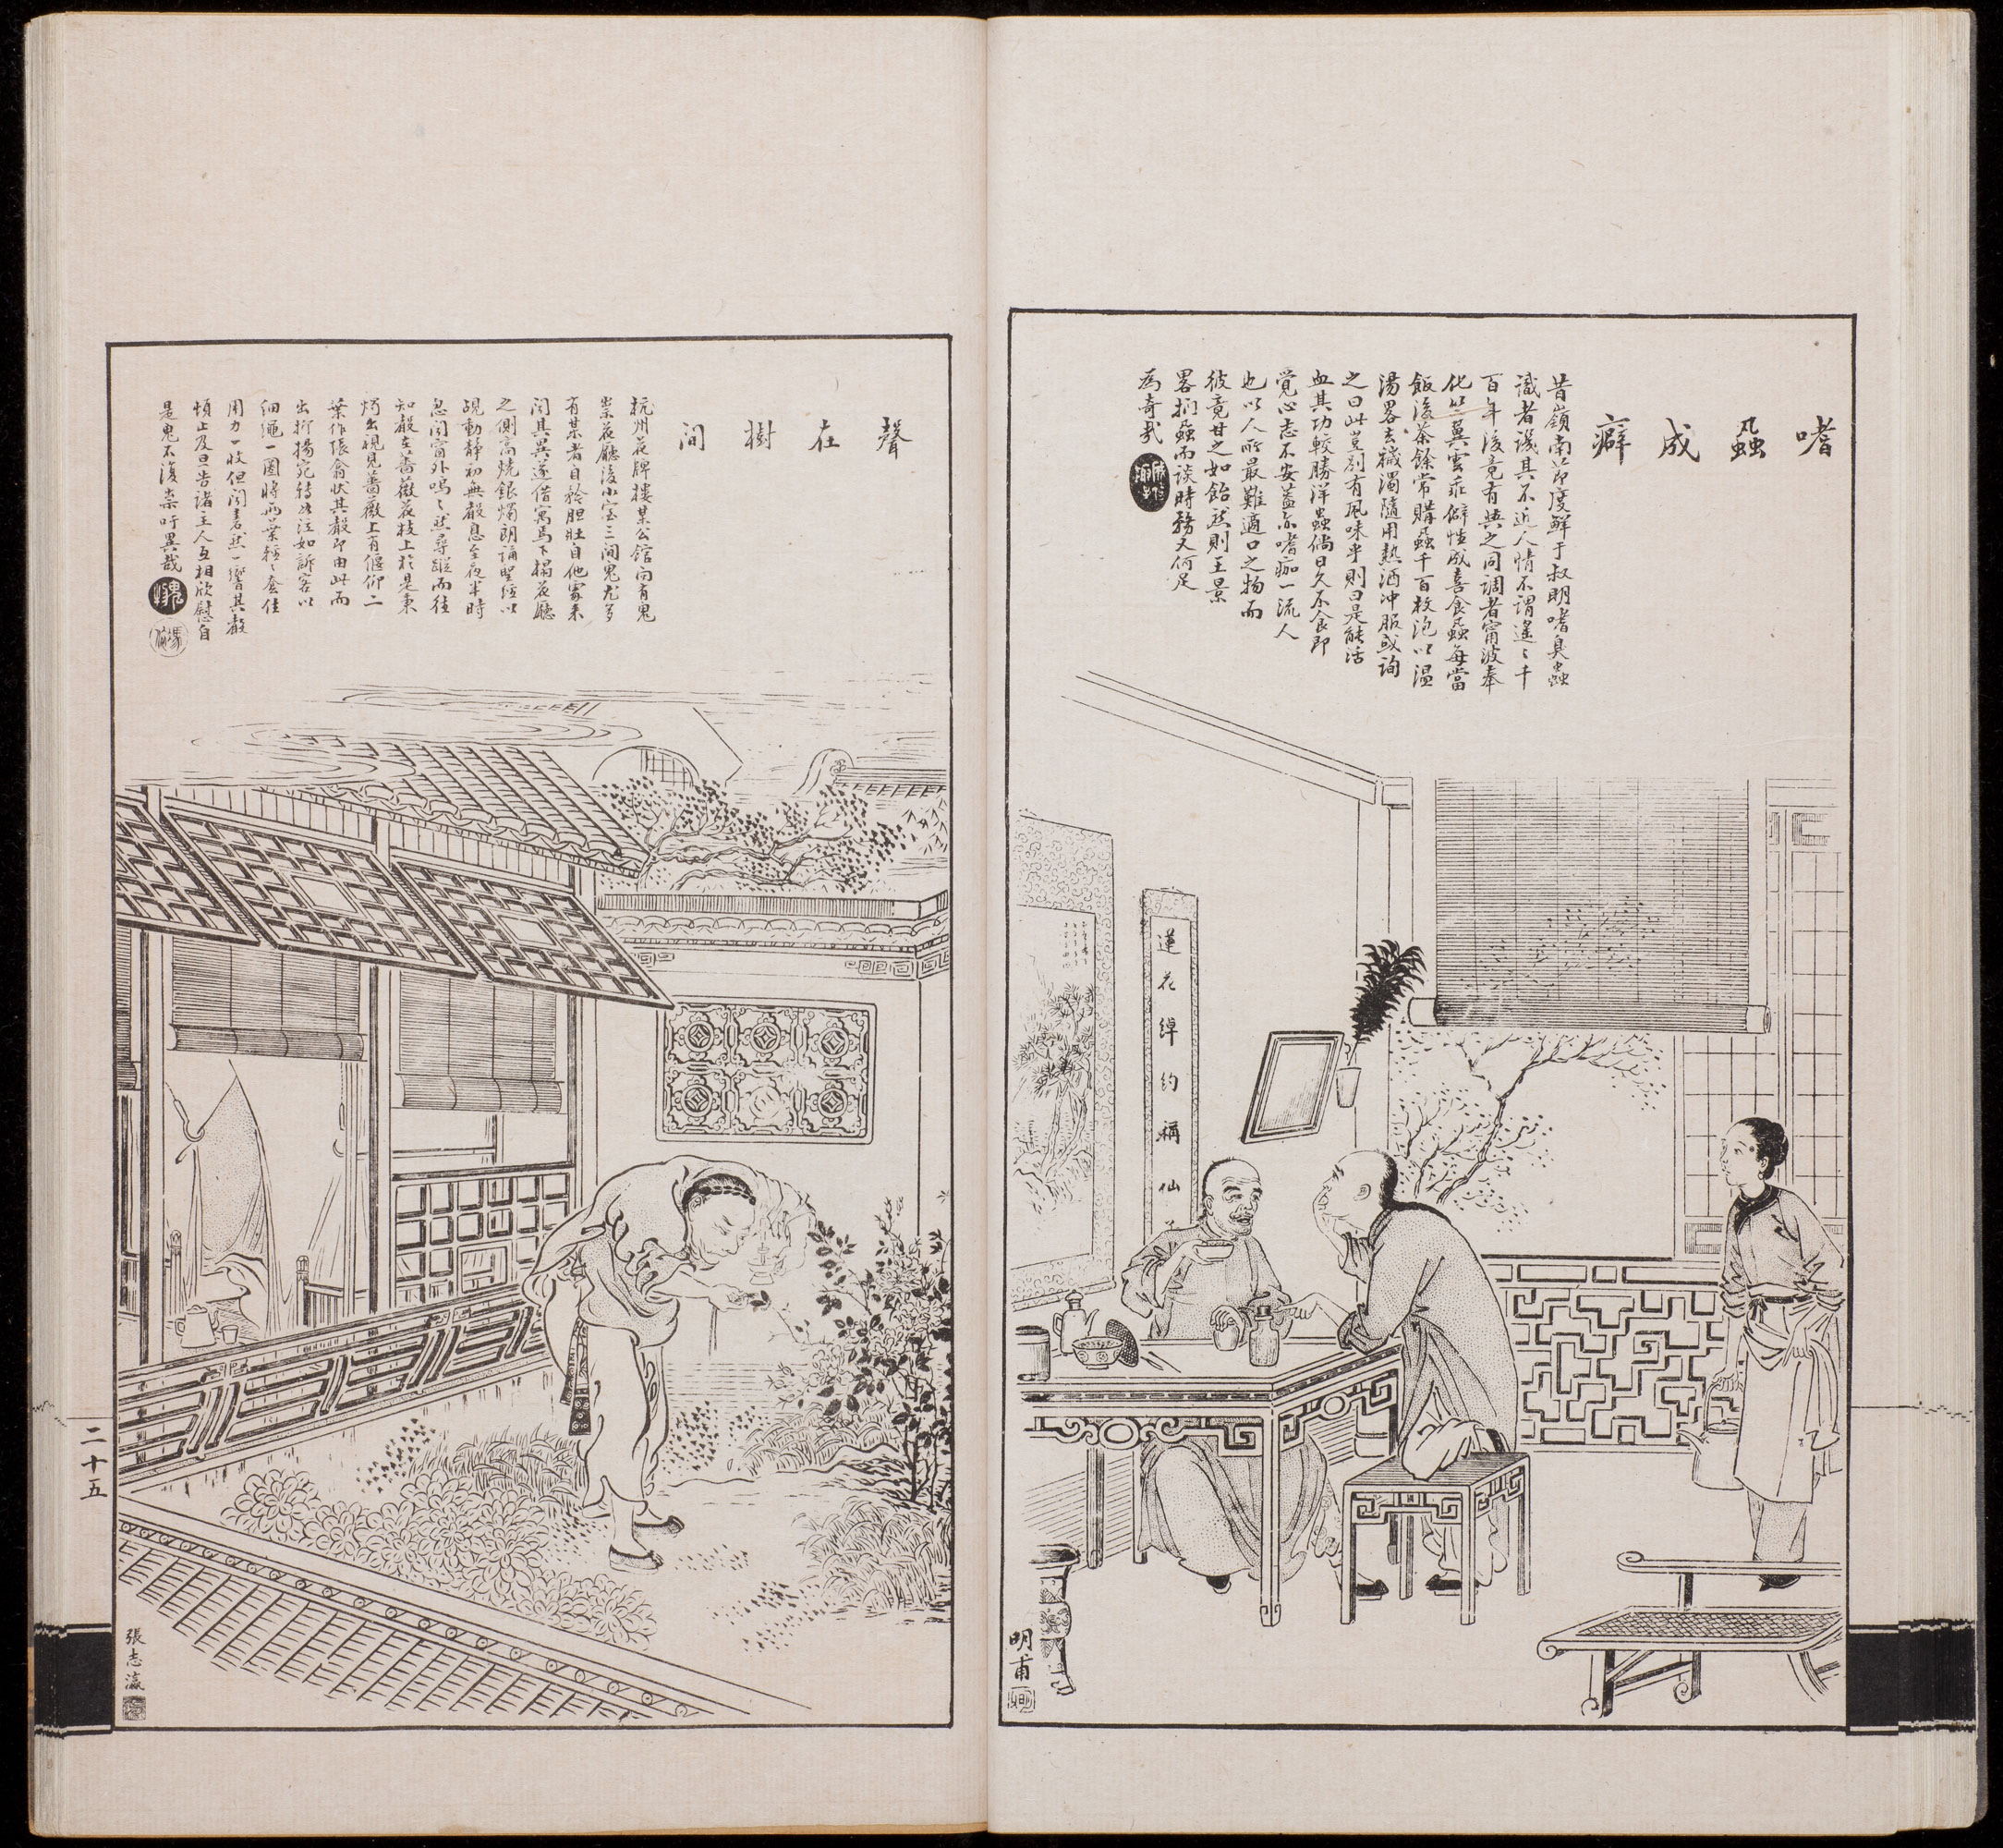 嗜蝨成癖
昔嶺南節度鮮于叔明嗜臭蟲
識者譏其不近人情不謂遙遙千
百年後竟有與之同調者甯波奉
化吳雲乖僻性成喜食蝨每當
飯後茶餘常購蝨千百枚泡以溫
湯畧去穢濁隨用熱酒冲服或詢
之曰此豈別有風味乎則曰是能活
血其功較勝洋蟲倘日久不食即
覺心志不安蓋亦嗜痂一流人
也以人所最難適口之物而
彼竟甘之如飴然則王景
畧捫蝨而談時務又何足
為奇哉
蓮花綽約稱仙
明甫
聲在樹間
杭州花牌樓某公館向有鬼
祟花廳後小室三間鬼尤多
有某者自矜胆壯自他處來
聞其異遂借寓焉下榻花廳
之側高燒銀燭朗誦聖經以
覘動靜初無聲息至夜半時
忽聞窗外嗚嗚然尋蹤而往
知聲在薔薇花枝上於是秉
燭出視見薔薇上有偃仰二
葉作張翕狀其聲即由此而
出抑揚宛轉如泣如訴客以
細繩一圈將兩葉輕輕套住
用力一收但聞砉然一響其聲
頓止及旦告諸主人互相欣慰自
是鬼不復祟吁異哉
二十五
張志瀛